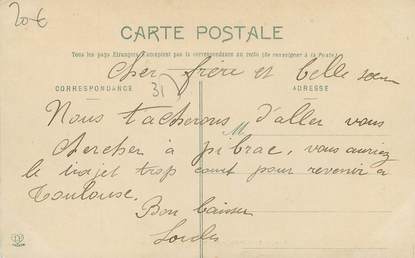 20€
CARTE POSTALE
Tous les pays Etrangers n'acceptent pas la correspondance au recto (Se renseigner à la Poste)
cher frère et belle sœur
31
CORRESPONDANCE
ADRESSE
Nous tacherons d'aller vous
M
chercher à pibrac, vous auriez
le trajet trop court pour revenir à
Toulouse.
Bon baiser